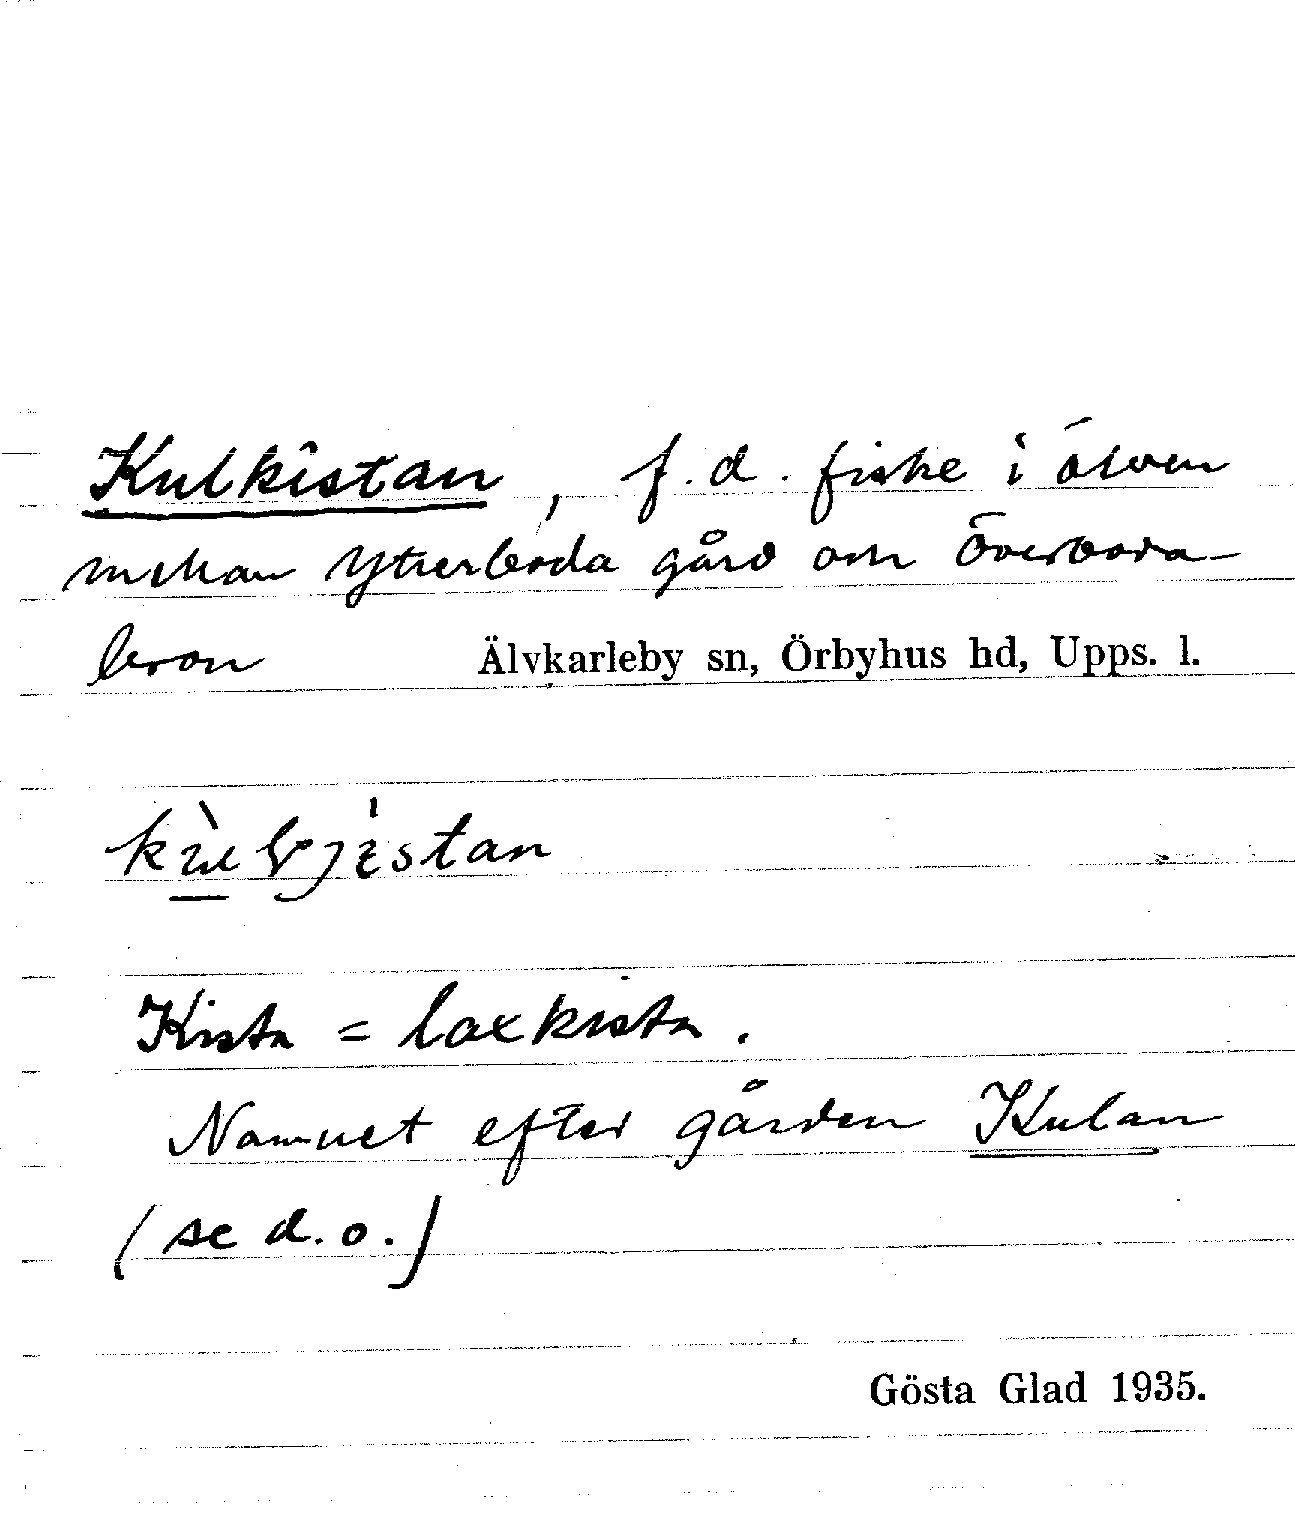 Kulkistan, f.d. fiske i älven
mellan Ytterboda gård och Överboda-
bron Älvkarleby sn, Örbyhus hd, Upps. l.
Kista = laxkista.
Namnet efter gården Kulan
(se d.o.)
Gösta Glad 1935.